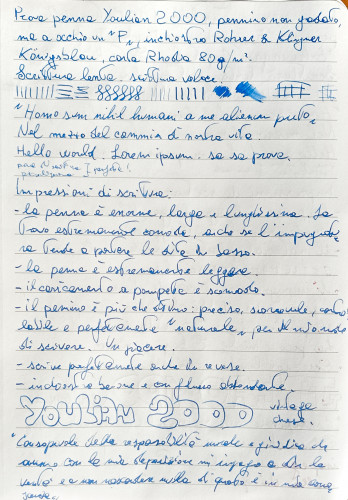 Prova penna Youlian 2000, pennino non gradato,
ma a occhio un "F", inchiostro Rohrer & Klingner
Königsblau, carta Rhodia 80 g/m².
Scrittura lenta. scrittura veloce.
"Homo sum nihil humani a me alienum puto"
Nel mezzo del cammin di nostra vita
Hello world. Lorem ipsum. sa sa prova.
Impressioni di scrittura:
- la penna è enorme, larga e lunghissima. La
trovo estremamente comoda, anche se l'impugnatu
ra tende a portare le dita in basso.
- la penna è estremamente leggera.
- il caricamento a pompetta è scomodo.
- il pennino è più che ottimo: preciso, scorrevole, control
labile e perfettamente "naturale" per il mio modo
di scrivere. Un piacere.
- scrive perfettamente anche in reverse.
- indossa bene e con flusso abbondante.
YOULIAN 2000
vintage
"Consapevole della responsabilità morale e giuridica che
assumo con la mia deposizione mi impegno a dire la
verità e a non nascondere nulla di quanto è a mia cono